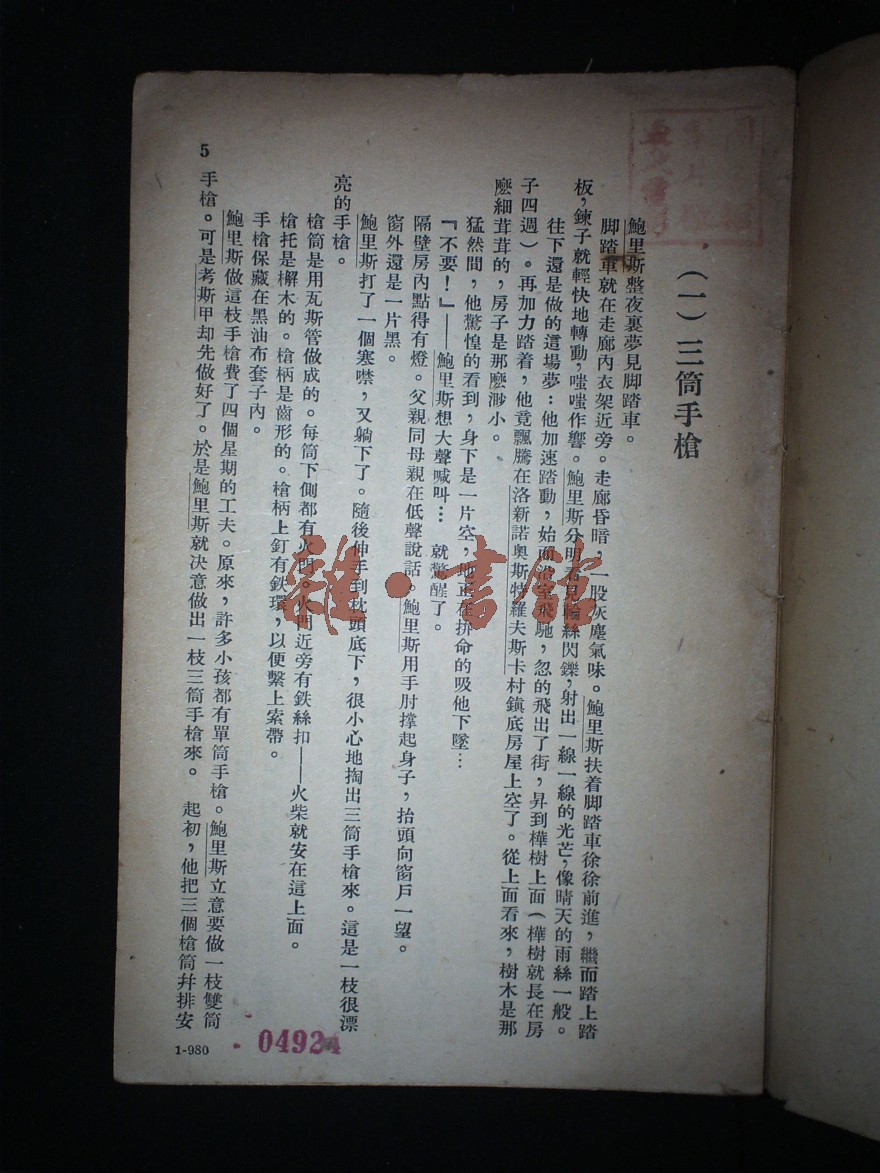 (一)三筒手槍
鮑里斯整夜裏夢見脚踏車。
脚踏車就在走廊內衣架近旁。走廊昏暗,一股灰塵氣味。鮑里斯扶着脚踏車徐徐前進,繼而踏上踏
板,鍊子就輕快地轉動,嗤嗤作響。鮑里斯分明看見輪絲閃鑠,射出一線一線的光芒,像晴天的雨絲一般。
往下還是做的這場夢:他加速踏動,始而沿室飛馳,忽的飛出了街,昇到樺樹上面(樺樹就長在房
子四週)。再加力踏着,他竟飄騰在洛新諾奧斯特羅夫斯卡村鎮底房屋上空了。從上面看來,樹木是那
麽細茸茸的,房子是那麽渺小。
猛然間,他驚惶的看到,身下是一片空,地正在拚命的吸他下墜…
『不要!』——鮑里斯想大聲喊叫… 就驚醒了。
隔壁房內點得有燈。父親同母親在低聲說話。鮑里斯用手肘撑起身子,抬頭向窗戶一望。
窗外還是一片黑。
鮑里斯打了一個寒噤,又躺下了。隨後伸手到枕頭底下,很小心地掏出三筒手槍來。這是一枝很漂
亮的手槍。
槍筒是用瓦斯管做成的。每筒下側都有火門。火門近旁有鉄絲扣——火柴就安在這上面。
槍托是檞木的。槍柄是齒形的。槍柄上釘有鉄環,以便繫上索帶。
手槍保藏在黑油布套子內。
鮑里斯做這枝手槍費了四個星期的工夫。原來,許多小孩都有單筒手槍。鮑里斯立意要做一枝雙筒
手槍。可是考斯甲却先做好了。於是鮑里斯就決意做出一枝三筒手槍來。 起初,他把三個槍筒幷排安
5
1-980
04924
雜·書館